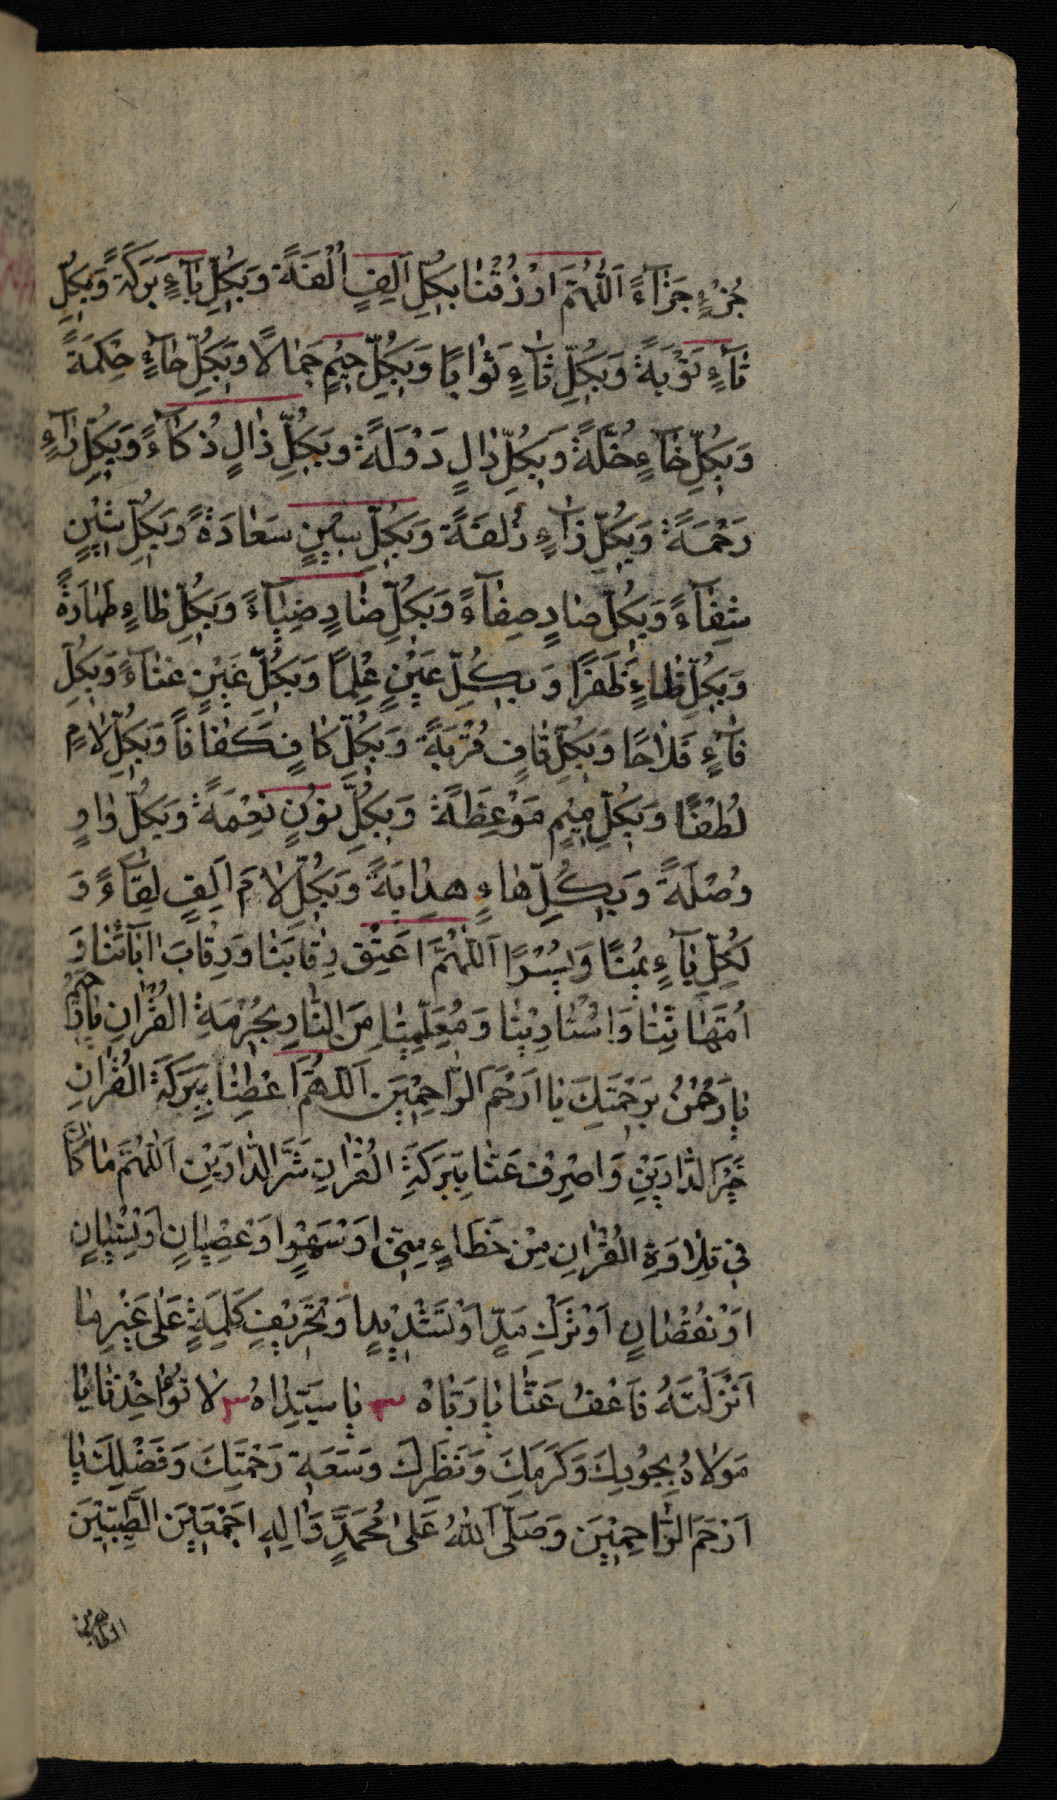 جُزْءٍ جَزَآءً اَللّٰهُمَّ ارْزُقْنَا بِكُلِّ اَلِفٍ اُلْفَةً وَبِكُلِّ بَآءٍ بَرَكَةً وَبِكُلِّ
تَآءٍ تَوْبَةً وَبِكُلِّ ثَآءٍ ثَوَابًا وَبِكُلِّ جِيْمٍ جَمَالًا وَبِكُلِّ حَآءٍ حِكْمَةً
وَبِكُلِّ خَآءٍ خُلَّةً وَبِكُلِّ دَالٍ دَوْلَةً وَبِكُلِّ ذَالٍ ذُكَاءً وَبِكُلِّ رَآءٍ
رَحْمَةً وَبِكُلِّ زَآءٍ زُلْفَةً وَبِكُلِّ سِيْنٍ سَعَادَةً وَبِكُلِّ شِيْنٍ
شِفَآءً وَبِكُلِّ صَادٍ صِفَآءً وَبِكُلِّ ضَادٍ ضِيَآءً وَبِكُلِّ طَاءٍ طَهَارَةً
وَبِكُلِّ ظَاءٍ ظَفَرًا وَبِكُلِّ عَيْنٍ عِلْمًا وَبِكُلِّ غَيْنٍ غَنَآءً وَبِكُلِّ
فَآءٍ فَلَاحًا وَبِكُلِّ قَافٍ قُرْبَةً وَبِكُلِّ كَافٍ كَفَافًا وَبِكُلِّ لَامٍ
لُطْفًا وَبِكُلِّ مِيْمٍ مَوْعِظَةً وَبِكُلِّ نُوْنٍ نِعْمَةً وَبِكُلِّ وَاوٍ
وُصْلَةً وَبِكُلِّ هَاءٍ هِدَايَةً وَبِكُلِّ لَامَ اَلِفٍ لِقَآءً وَ
لِكُلِّ يَآءٍ يُمْنًا وَ يُسْرًا اَللّٰهُمَّ اعْتِقْ رِقَابَنَا وَرِقَابَ اٰبَآئِنَا وَ
اُمَّهَاتِنَا وَاُسْتَادِيْنَا وَمُعَلِّمِيْنَا مِنَ النَّارِ بِحُرْمَةِ الْقُرْاٰنِ
يَا رَحْمٰنُ بِرَحْمَتِكَ يَا اَرْحَمَ الرَّاحِمِيْنَ اَللّٰهُمَّ اعْطِنَا بِبَرَكَةِ الْقُرْاٰنِ
خَيْرَ الدَّارَيْنِ وَاصْرِفْ عَنَّا بِبَرَكَةِ الْقُرْاٰنِ شَرَّ الدَّارَيْنِ اَللّٰهُمَّ مَا كَانَ
فِيْ تِلَاوَةِ الْقُرْاٰنِ مِنْ خَطَاءٍ مِنِّيْ اَوْ سَهْوٍ اَوْ عِصْيَانٍ اَوْ نِسْيَانٍ
اَوْ نُقْصَانٍ اَوْ تَرْكِ مَدٍّ اَوْ تَشْدِيْدٍ اَوْ تَحْرِيْفِ كَلِمَةٍ عَلٰى غَيْرِ مَا
اَنْزَلْتَهُ فَاعْفُ عَنَّا يَا رَبَّاهْ ٣ يَا سَيِّدَاهُ ٣ لَا تُؤَاخِذْنَا يَا
مَوْلَاهُ بِجُوْدِكَ وَكَرَمِكَ وَنَظَرِكَ وَسَعَةِ رَحْمَتِكَ وَفَضْلِكَ يَا
اَرْحَمَ الرَّاحِمِيْنَ وَصَلَّى اللّٰهُ عَلٰى مُحَمَّدٍ وَاٰلِهِ اَجْمَعِيْنَ الطَّيِّبِيْنَ
الطاهرين